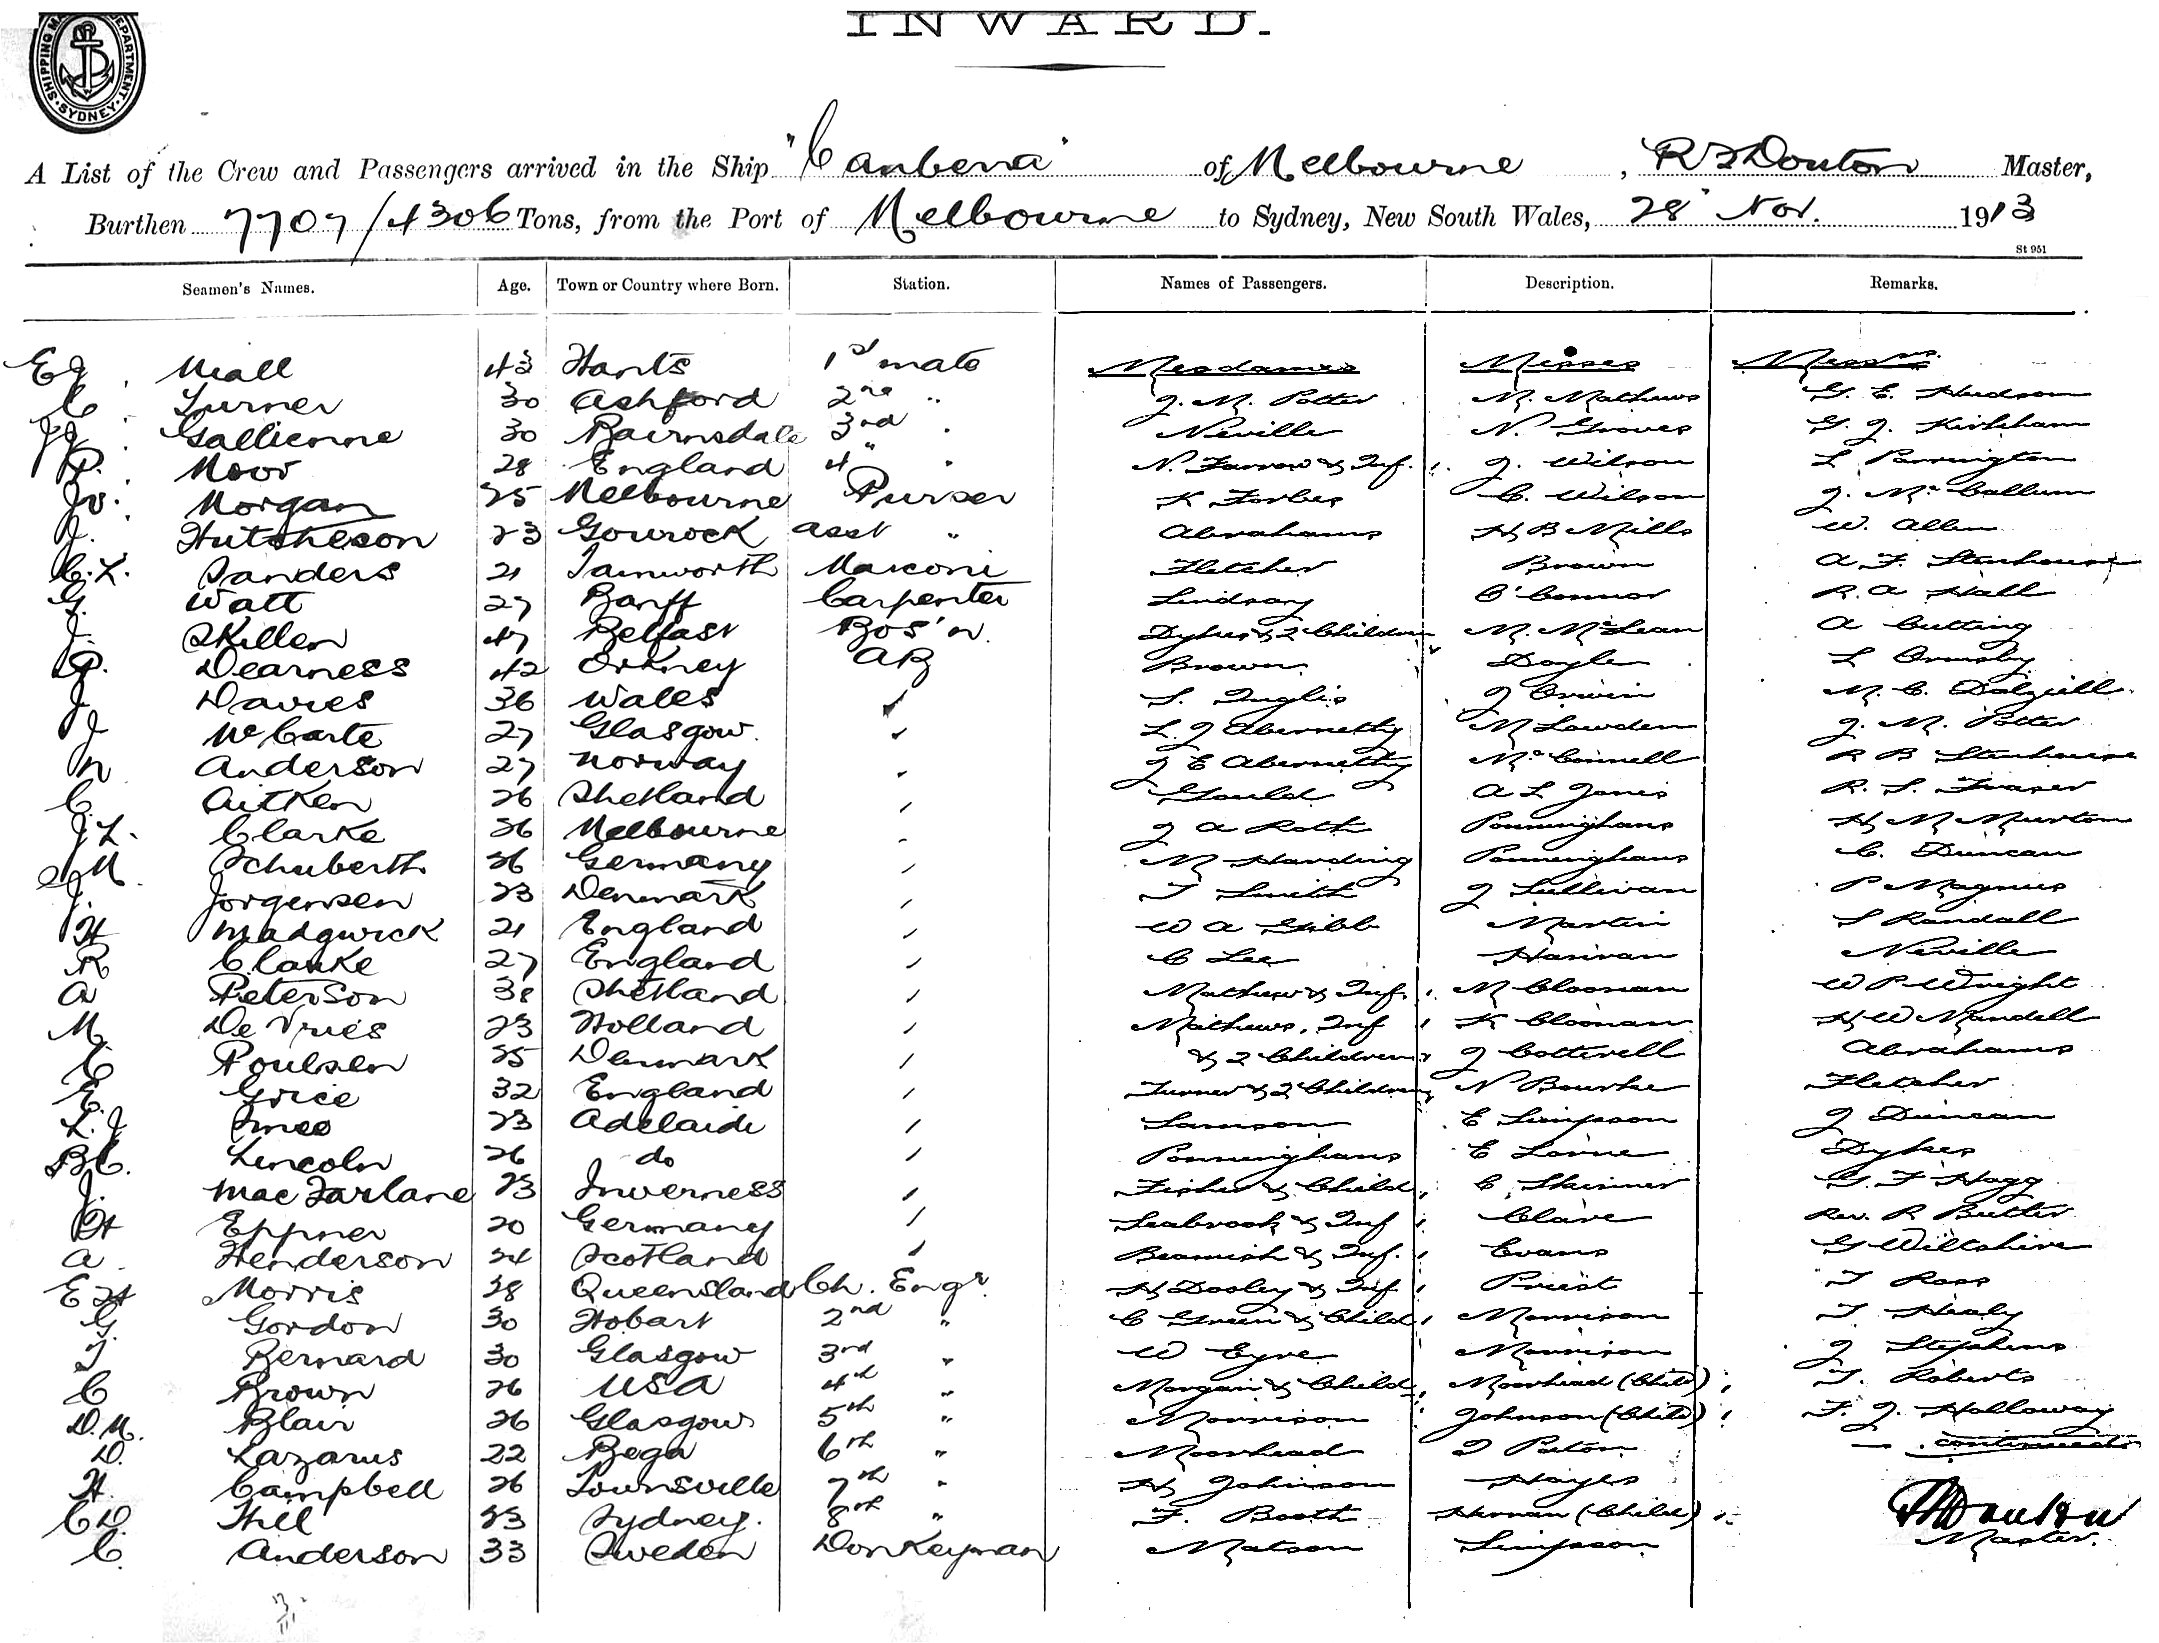 SHIPPING MA DEPARTMENT SYDNEY
INWARD.
A List of the Crew and Passengers arrived in the Ship "Canberra" of Melbourne, Master,
Burthen 7707/4306 Tons, from the Port of Melbourne to Sydney, New South Wales, 28 Nov. 1913
St 951
Seamen's Names. Age. Town or Country where Born. Station. Names of Passengers. Description. Remarks.
43 Hants 1st mate Mesdames Misses Messrs
C Turner 30 Ashford 2nd " J. M. Potter M. Mathews G. E. Hudson
Gallienne 30 Bairnsdale 3rd " Neville N. Groves G. J. Kirkham
P. Moor 28 England 4 " N. Farrow & Inf. J. Wilson L Pennington
W. Morgan 25 Melbourne Purser K Forbes C. Wilson J. McCallum
Hutcheson 23 Gourock asst " Abrahams H B Mills W. Allen
C. L. Sanders 21 Tamworth Marconi Fletcher Brown A. F. Stenhouse
G. Watt 27 Banff Carpenter Lindsay O'Connor R. A Hall
J. Skillen 47 Belfast Bos'n. Dykes & 2 Children M. McLean A Cutting
P. Dearness 42 Orkney AB Brown Doyle L Ormsby
J Davies 36 Wales S. Inglis J Orwin M. C. Dalziell
J McCarte 27 Glasgow. L. J Abernethy M Lowden J. M. Potter
N Anderson 27 Norway J E Abernethy McConnell R B Stenhouse
C Aitken 26 Shetland Gould A L Jones R. S. Fraser
J L. Clarke 26 Melbourne J A Roth Ponninghaus H M Murton
M. Schuberth 26 Germany M Harding Ponninghaus C. Duncan
J. Jorgensen 23 Denmark T Smith J Sullivan P Magnus
H Madgwick 21 England W A Gibb Martin S Randall
R Clarke 27 England C Lee Hanvan Neville
A Peterson 38 Shetland Mathews & Inf. M Cloonan W P Wright
M De Vries 23 Holland Mathews, Inf K Cloonan H W Mandell
C Poulsen 25 Denmark & 2 Children J Cotterell Abrahams
E Grice 32 England Turner & 2 Children N Bourke Fletcher
L. J Innes 23 Adelaide Samson E Simpson J Duncan
B C. Lincoln 26 do Ponninghaus E Lorne Dykes
J. MacFarlane 23 Inverness Fisher & Child C. Skinner G. F Hogg
H Eppner 20 Germany Seabrook & Inf Clare Rev. R Butler
A Henderson 24 Scotland Beamish & Inf. Evans G Wiltshire
E H Morris 38 Queensland Ch. Engr. H Dooley & Inf Priest T Ross
G. Gordon 30 Hobart 2nd " C Green & Child Morrison T Healy
T Bernard 30 Glasgow 3rd " W Eyre Morrison J Stephens
C Brown 26 USA 4th " Morgan & Child Moorhead (Child) T. Roberts
D. M. Blair 26 Glasgow 5th " Morrison Johnson (Child) F. J. Holloway
D. Lazarus 22 Bega 6th " Moorhead Paton continued
H. Campbell 26 Townsville 7th " H Johnson Hayes
C D. Hill 23 Sydney. 8th " F. Booth (Child)
C. Anderson 33 Sweden Donkeyman Matson Simpson Master.